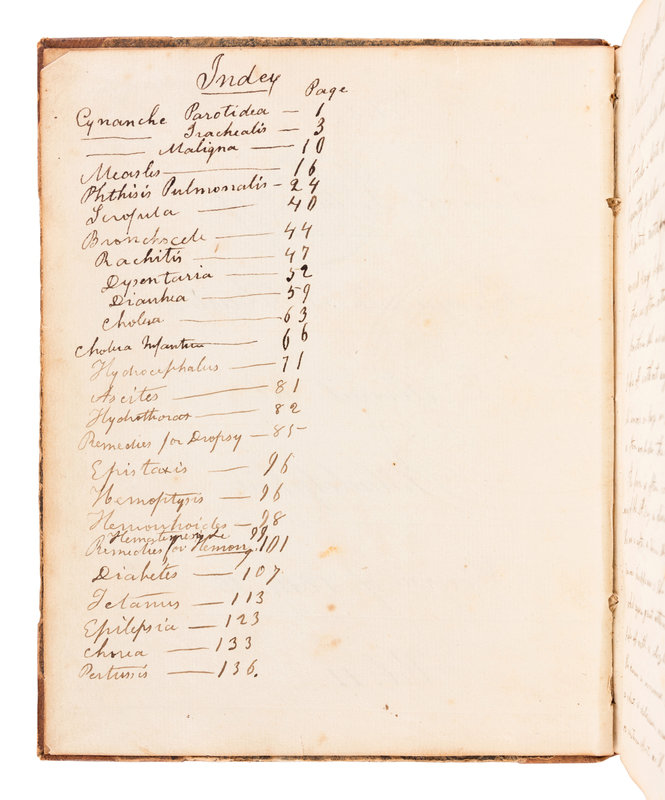 Index
Page
Cynanche Parotidea — 1
——— Trachealis — 3
——— Maligna — 10
Measles — 16
Phthisis Pulmonalis - 24
Scrofula — 40
Bronchocele — 44
Rachitis — 47
Dysentaria — 52
Diarrhea — 59
Cholera — 63
Cholera Infantum — 66
Hydrocephalus — 71
Ascites — 81
Hydrothorax — 82
Remedies for Dropsy — 85
Epistaxis — 96
Hemoptysis — 96
Hemorrhoides — 98
99
Remedies for Hemorr. 101
Diabetes — 107
Tetanus — 113
Epilepsia — 123
Chorea — 133
Pertussis — 136.